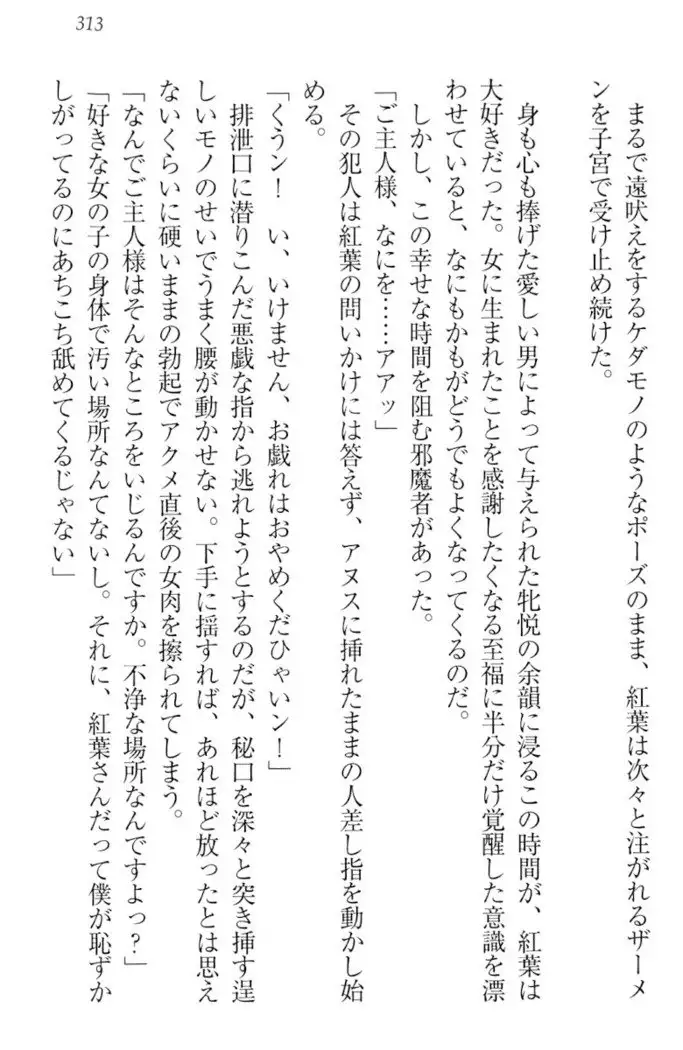 313
まるで遠吠えをするケダモノのようなポーズのまま、紅葉は次々と注がれるザーメ
ンを子宮で受け止め続けた。
身も心も捧げた愛しい男によって与えられた牝悦の余韻に浸るこの時間が、紅葉は
大好きだった。女に生まれたことを感謝したくなる至福に半分だけ覚醒した意識を漂
わせていると、なにもかもがどうでもよくなってくるのだ。
しかし、この幸せな時間を阻む邪魔者があった。
「ご主人様、なにを……アアッ」
その犯人は紅葉の問いかけには答えず、アヌスに挿れたままの人差し指を動かし始
める。
「くうン！　い、いけません、お戯れはおやめくだひゃいン！」
排泄口に潜りこんだ悪戯な指から逃れようとするのだが、秘口を深々と突き挿す逞
しいモノのせいでうまく腰が動かせない。下手に揺すれば、あれほど放ったとは思え
ないくらいに硬いままの勃起でアクメ直後の女肉を擦られてしまう。
「なんでご主人様はそんなところをいじるんですか。不浄な場所なんですよっ？」
「好きな女の子の身体で汚い場所なんてないし。それに、紅葉さんだって僕が恥ずか
しがってるのにあちこち舐めてくるじゃない」